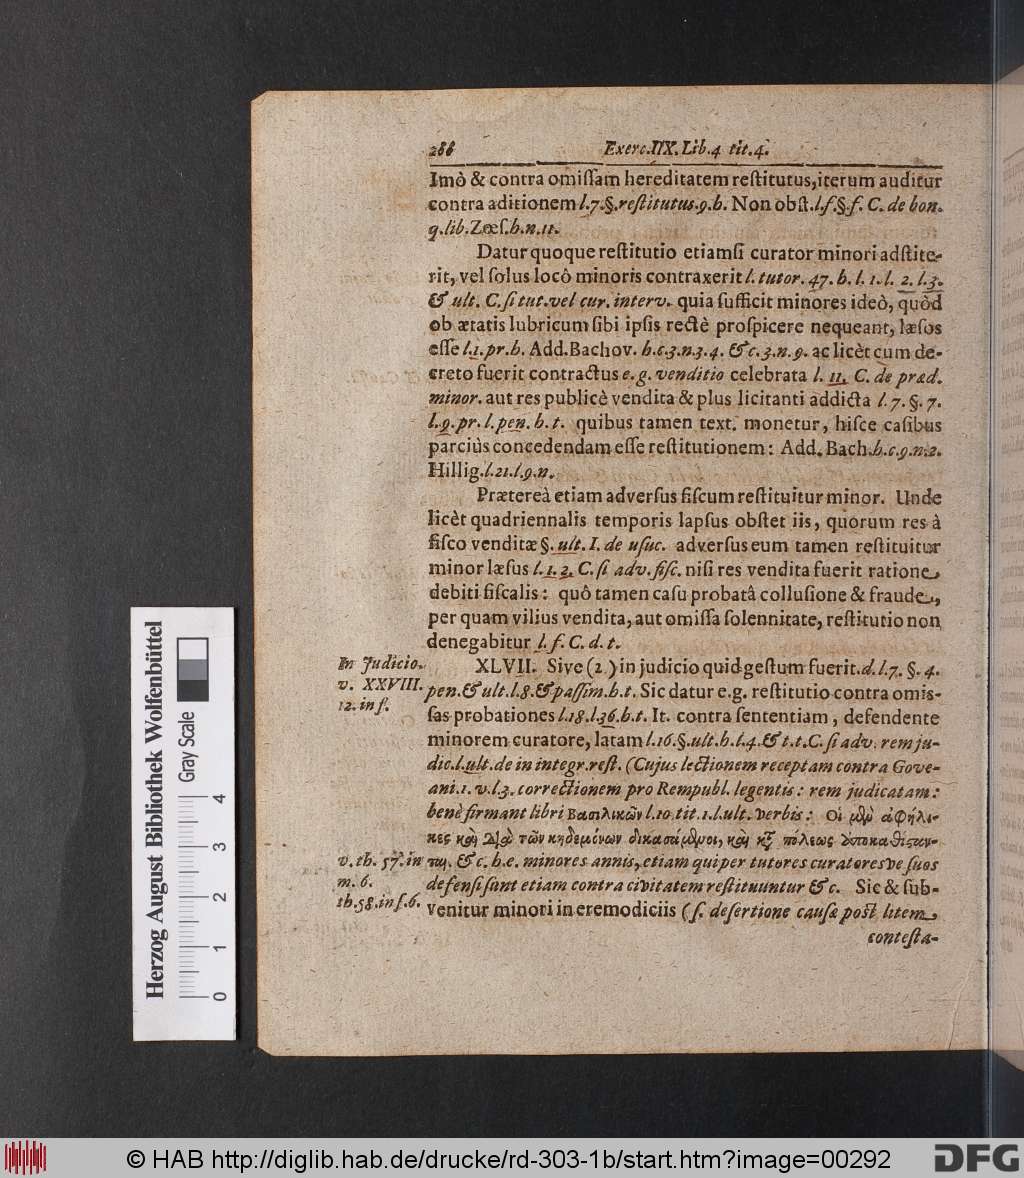 288 Exerc. IIX. Lib. 4 tit. 4.
Imò & contra omiſſam hereditatem reſtitutus, iterum auditur
contra aditionem l. 7. §. reſtitutus. 9. h. Non obſt. l. f. §. f. C. de bon.
q. lib. Zœſ. h. n. 11.
Datur quoque reſtitutio etiamſi curator minori adſtite-
rit, vel ſolus locô minoris contraxerit l. tutor. 47. h. l. 1. l. 2. l. 3.
& ult. C. ſi tut. vel cur. interv. quia ſufficit minores ideò, quòd
ob ætatis lubricum ſibi ipſis rectè proſpicere nequeant, læſos
eſſe l. 1. pr. h. Add. Bachov. h. c. 3. n. 3. 4. & c. 3. n. 9. ac licèt cum de-
creto fuerit contractus e. g. venditio celebrata l. 11. C. de præd.
minor. aut res publicè vendita & plus licitanti addicta l. 7. §. 7.
l. 9. pr. l. pen. h. t. quibus tamen text. monetur, hiſce caſibus
parciùs concedendam eſſe reſtitutionem: Add. Bach. h. c. 9. n. 2.
Hillig. l. 21. l. 9. n.
Prætereà etiam adverſus fiſcum reſtituitur minor. Unde
licèt quadriennalis temporis lapſus obſtet iis, quorum res à
fiſco venditæ §. ult. I. de uſuc. adverſus eum tamen reſtituitur
minor læſus l. 1. 2. C. ſi adv. fiſc. niſi res vendita fuerit ratione
debiti fiſcalis: quô tamen caſu probatâ colluſione & fraude,
per quam vilius vendita, aut omiſſa ſolennitate, reſtitutio non
denegabitur l. f. C. d. t.
In Judicio.
v. XXVIII.
12. in f.
XLVII. Sive (2.) in judicio quid geſtum fuerit. d. l. 7. §. 4.
pen. & ult. l. 8. & paſſim. h. t. Sic datur e. g. reſtitutio contra omiſ-
ſas probationes l. 18. l. 36. h. t. It. contra ſententiam, defendente
minorem curatore, latam l. 16. §. ult. h. l. 4. & t. t. C. ſi adv. rem ju-
dic. l. ult. de in integr. reſt. (Cujus lectionem receptam contra Gove-
ani. 1. v. l. 3. correctionem pro Rempubl. legentis: rem judicatam:
benè firmant libri Βασιλικῶν l. 10. tit. 1. l. ult. verbis: Οἱ μὲν ἀφήλι-
κες καὶ διὰ τῶν κηδεμόνων δικασάμενοι, καὶ κατὰ πόλεως ἀποκαθίσταν-
ται. & c. h. e. minores annis, etiam qui per tutores curatoresve ſuos
defenſi ſunt etiam contra civitatem reſtituuntur & c. Sic & ſub-
venitur minori in eremodiciis (ſ. deſertione cauſæ poſt litem
v. th. 57. in
m. 6.
th. 58. in f. 6.
conteſta-
Herzog August Bibliothek Wolfenbüttel
Gray Scale
0 1 2 3 4
© HAB http://diglib.hab.de/drucke/rd-303-1b/start.htm?image=00292
DFG